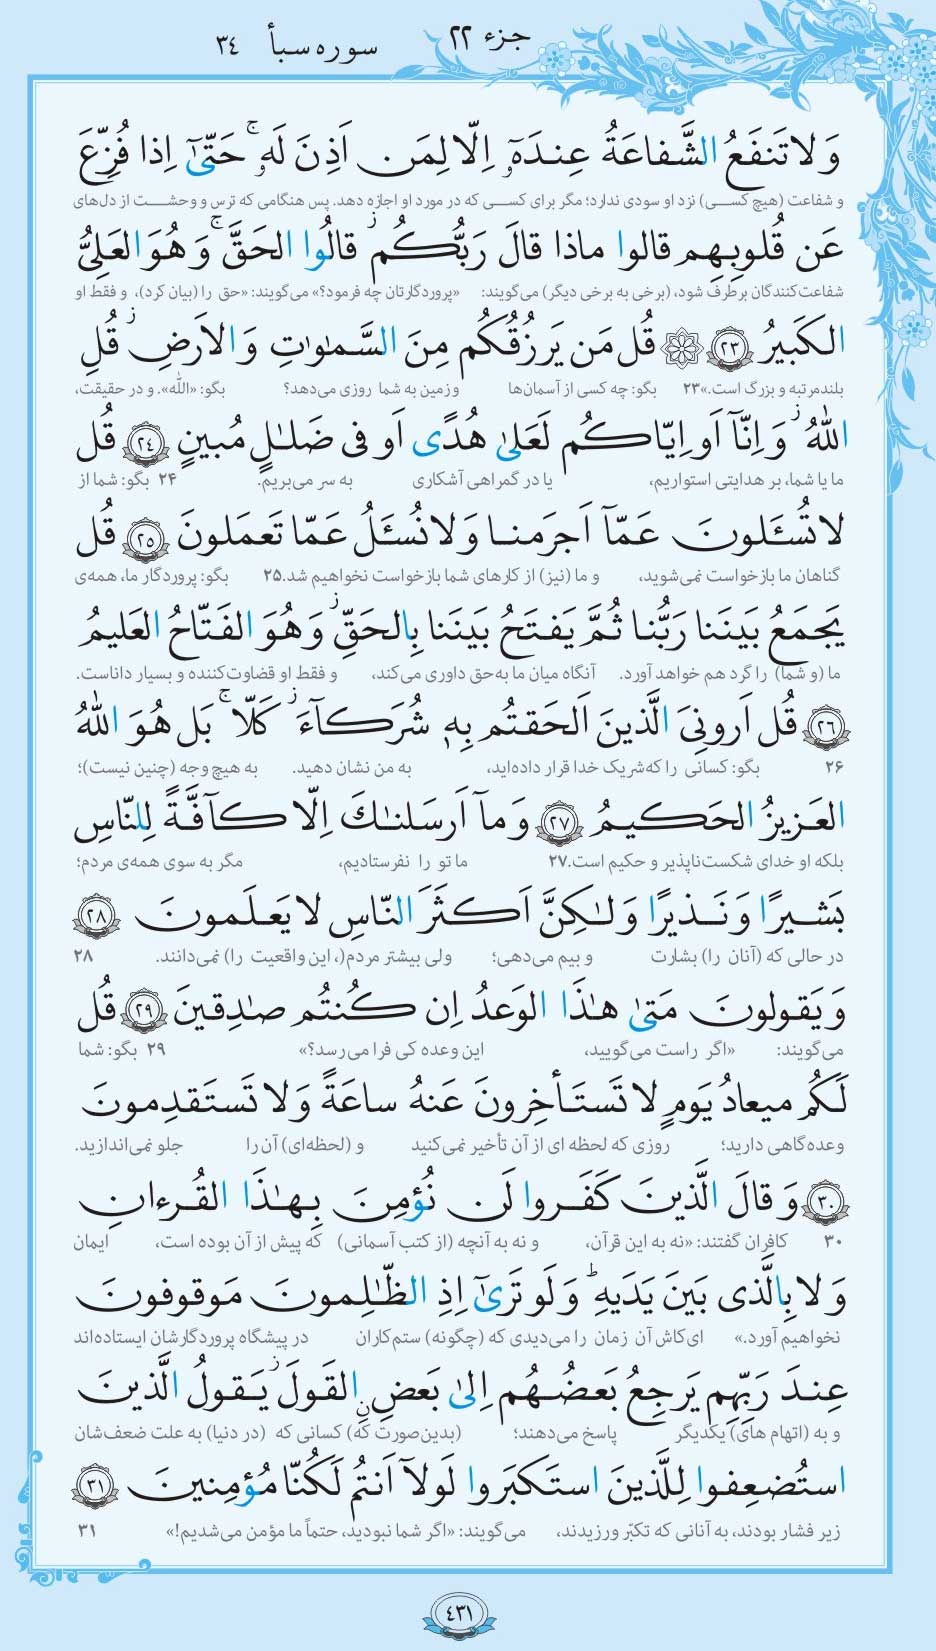 جزء ٢٢
سوره سبأ ٣٤
وَ لا تَنفَعُ الشَّفاعَةُ عِندَهُۥٓ اِلّا لِمَن اَذِنَ لَهُۥ ۚ حَتّىٰٓ اِذا فُزِّعَ
و شفاعت (هیچ کسی) نزد او سودی ندارد؛ مگر برای کسی که در مورد او اجازه دهد. پس هنگامی که ترس و وحشت از دل‌های
عَن قُلوبِهِم قالوا ماذا قالَ رَبُّكُم ۖ قالُوا الحَقَّ ۚ وَ هُوَ العَلِیُّ
شفاعت‌کنندگان برطرف شود، (برخی به برخی دیگر) می‌گویند: «پروردگارتان چه فرمود؟» می‌گویند: «حق را (بیان کرد)، و فقط او
الكَبیرُ ٢٣ ۞ قُل مَن یَرزُقُكُم مِنَ السَّمٰوٰتِ وَ الاَرضِ ۖ قُلِ
بلندمرتبه و بزرگ است.» ۲۳ بگو: چه کسی از آسمان‌ها وزمین به شما روزی می‌دهد؟ بگو: «الله». و در حقیقت،
اللّٰهُ ۖ وَ اِنّآ اَو اِیّاكُم لَعَلىٰ هُدًى اَو فی ضَلٰلٍ مُبینٍ ٢٤ قُل
ما یا شما، بر هدایتی استواریم، یا در گمراهی آشکاری به سر می‌بریم. ۲۴ بگو: شما از
لا تُسـَٔلونَ عَمّآ اَجرَمنا وَ لا نُسـَٔلُ عَمّا تَعمَلونَ ٢٥ قُل
گناهان ما بازخواست نمی‌شوید، و ما (نیز) از کارهای شما بازخواست نخواهیم شد. ۲۵ بگو: پروردگار ما، همه‌ی
یَجمَعُ بَینَنا رَبُّنا ثُمَّ یَفتَحُ بَینَنا بِالحَقِّ ۖ وَ هُوَ الفَتّاحُ العَلیمُ
ما (و شما) را گرد هم خواهد آورد. آنگاه میان ما به‌حق داوری می‌کند، و فقط او قضاوت‌کننده و بسیار داناست.
٢٦ قُل اَرونِیَ الَّذینَ اَلحَقتُم بِهٖ شُرَكآءَ ۖ كَلّا ۚ بَل هُوَ اللّٰهُ
۲۶ بگو: کسانی را که شریک خدا قرار داده‌اید، به من نشان دهید. به هیچ وجه (چنین نیست)؛
العَزیزُ الحَكیمُ ٢٧ وَ مآ اَرسَلنٰكَ اِلّا كآفَّةً لِلنّاسِ
بلکه او خدای شکست‌ناپذیر و حکیم است. ۲۷ ما تو را نفرستادیم، مگر به سوی همه‌ی مردم؛
بَشیرًا وَ نَذیرًا وَ لٰكِنَّ اَكثَرَ النّاسِ لا یَعلَمونَ ٢٨
در حالی که (آنان را) بشارت و بیم می‌دهی؛ ولی بیشتر مردم(، این واقعیت را) نمی‌دانند. ۲۸
وَ یَقولونَ مَتىٰ هٰذَا الوَعدُ اِن كُنتُم صٰدِقینَ ٢٩ قُل
می‌گویند: «اگر راست می‌گویید، این وعده کی فرا می‌رسد؟» ۲۹ بگو: شما
لَكُم میعادُ یَومٍ لا تَستَأخِرونَ عَنهُ ساعَةً وَ لا تَستَقدِمونَ
وعده‌گاهی دارید؛ روزی که لحظه ای از آن تأخیر نمی‌کنید و (لحظه‌ای) آن را جلو نمی‌اندازید.
٣٠ وَ قالَ الَّذینَ كَفَروا لَن نُؤمِنَ بِهٰذَا القُرءانِ
۳۰ کافران گفتند: «نه به این قرآن، و نه به آنچه (از کتب آسمانی) که پیش از آن بوده است، ایمان
وَ لا بِالَّذی بَینَ یَدَیهِ ۗ وَ لَو تَرىٰٓ اِذِ الظّٰلِمونَ مَوقوفونَ
نخواهیم آورد.» ای‌کاش آن زمان را می‌دیدی که (چگونه) ستم‌کاران در پیشگاه پروردگارشان ایستاده‌اند
عِندَ رَبِّهِم یَرجِعُ بَعضُهُم اِلىٰ بَعضٍ القَولَ ۖ یَقولُ الَّذینَ
و به (اتهام های) یکدیگر پاسخ می‌دهند؛ (بدین‌صورت که) کسانی که (در دنیا) به علت ضعف‌شان
استُضعِفوا لِلَّذینَ استَكبَروا لَولآ اَنتُم لَكُنّا مُؤمِنینَ ٣١
زیر فشار بودند، به آنانی که تکبّر ورزیدند، می‌گویند: «اگر شما نبودید، حتماً ما مؤمن می‌شدیم!» ۳۱
٤٣١